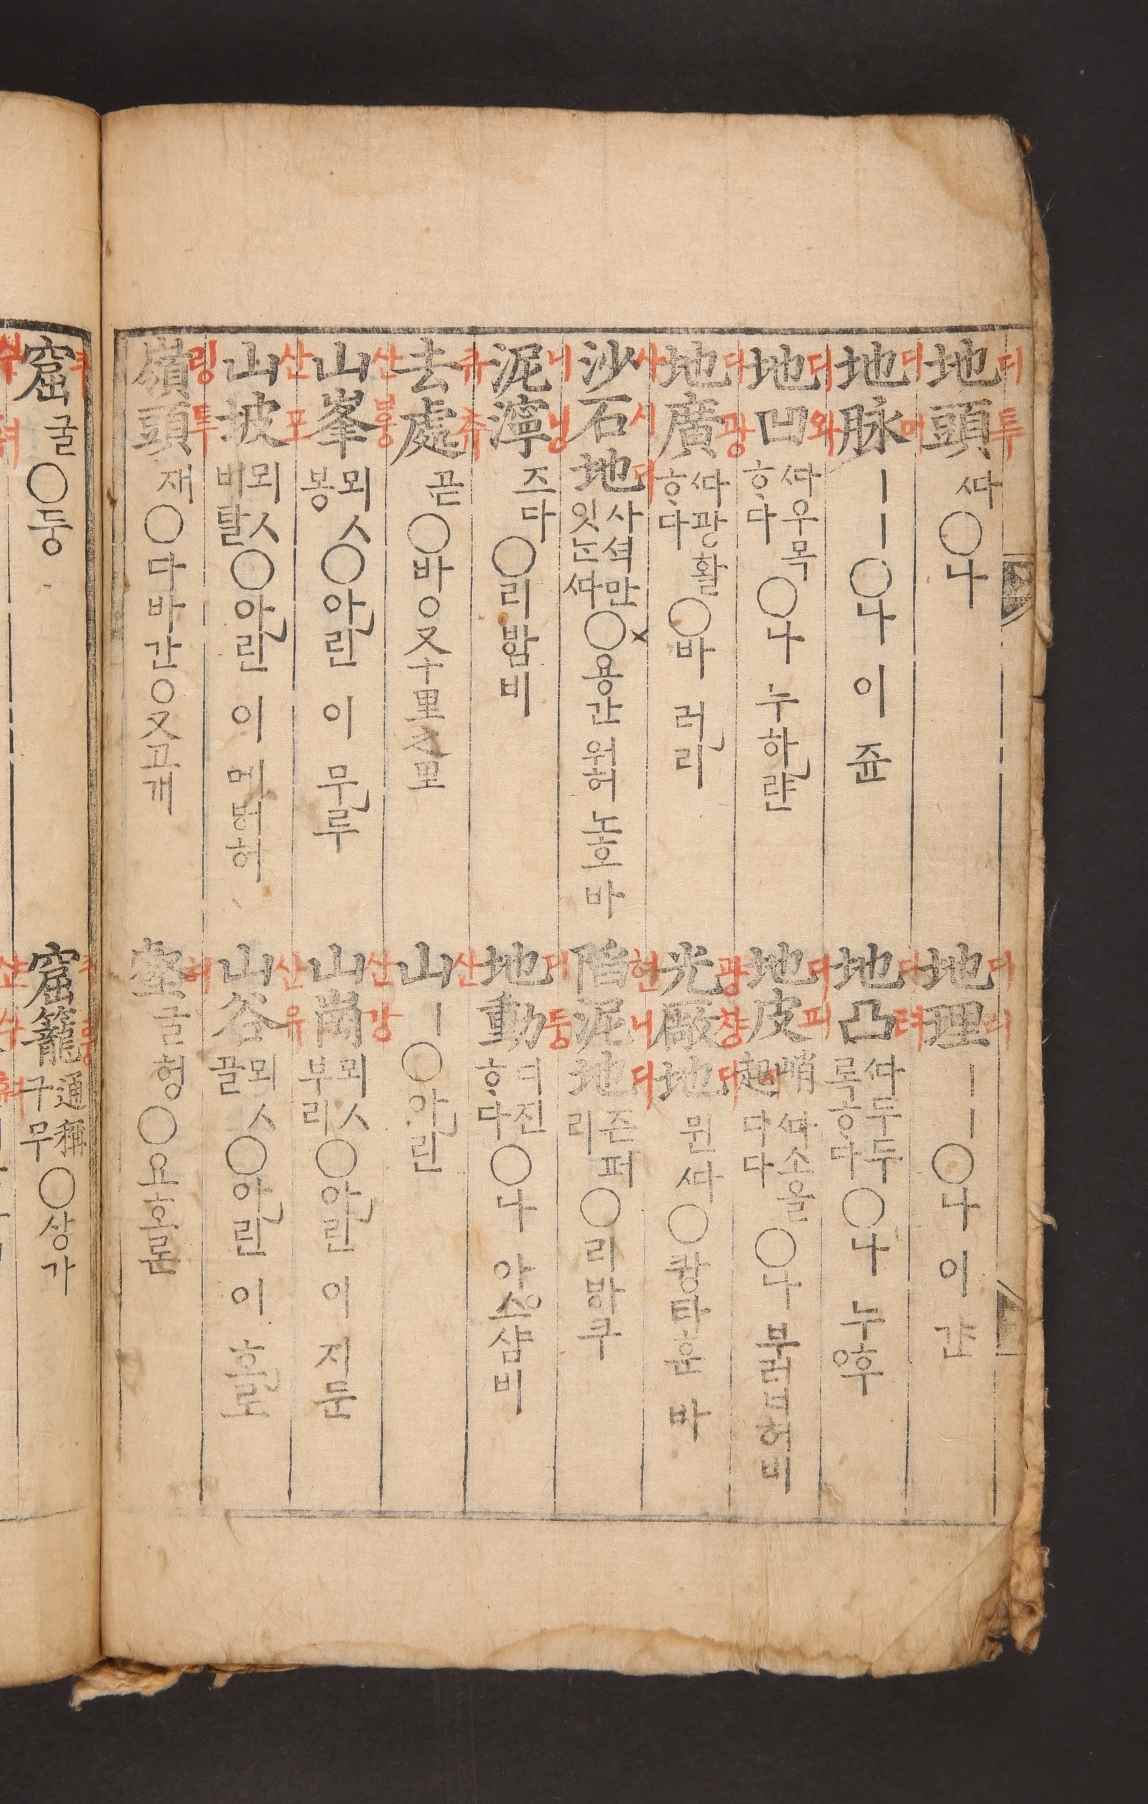 地頭 ᄯᅡ ○나
디투
地理 ㅣㅣ ○나 이 갼
디리
地脉 ㅣㅣ ○나 이 쥰
디머
地凸 ᄯᅡ두두록ᄒᆞ다 ○나 누후
디
地凹 ᄯᅡ우목ᄒᆞ다 ○나 누하랸
디와
地皮峭起 ᄯᅡ소올다다
디피
地廣 ᄯᅡ광활ᄒᆞ다 ○바 러리
디광
光廠地 뮌ᄯᅡ ○쾅타훈 바
광챵디
沙石地 사셕만 잇ᄂᆞᆫᄯᅡ ○용간 워허 노호 바
사시디
陷泥地 즌퍼리 ○리마쿠
현니디
泥濘 즈다 ○리밤비
니닝
地動 디진ᄒᆞ다 ○나 아ᅀᅳ샴비
디퉁
去處 곧 ○바○又十里之里
큐츄
山 ㅣ ○아린
산
山峯 뫼ㅅ봉 ○아린 이 무루
산봉
山崗 뫼ㅅ부리 ○아린 이 지둔
산강
山坡 뫼ㅅ비탈 ○아린 이 메덩허
산포
山谷 뫼ㅅ골 ○아린 이 호로
산유
嶺頭 재 ○다바간○又고개
링투
굴헝 ○요호론
허
窟 굴 ○둥
쿠
窟籠 通稱구무 ○상가
쿠롱